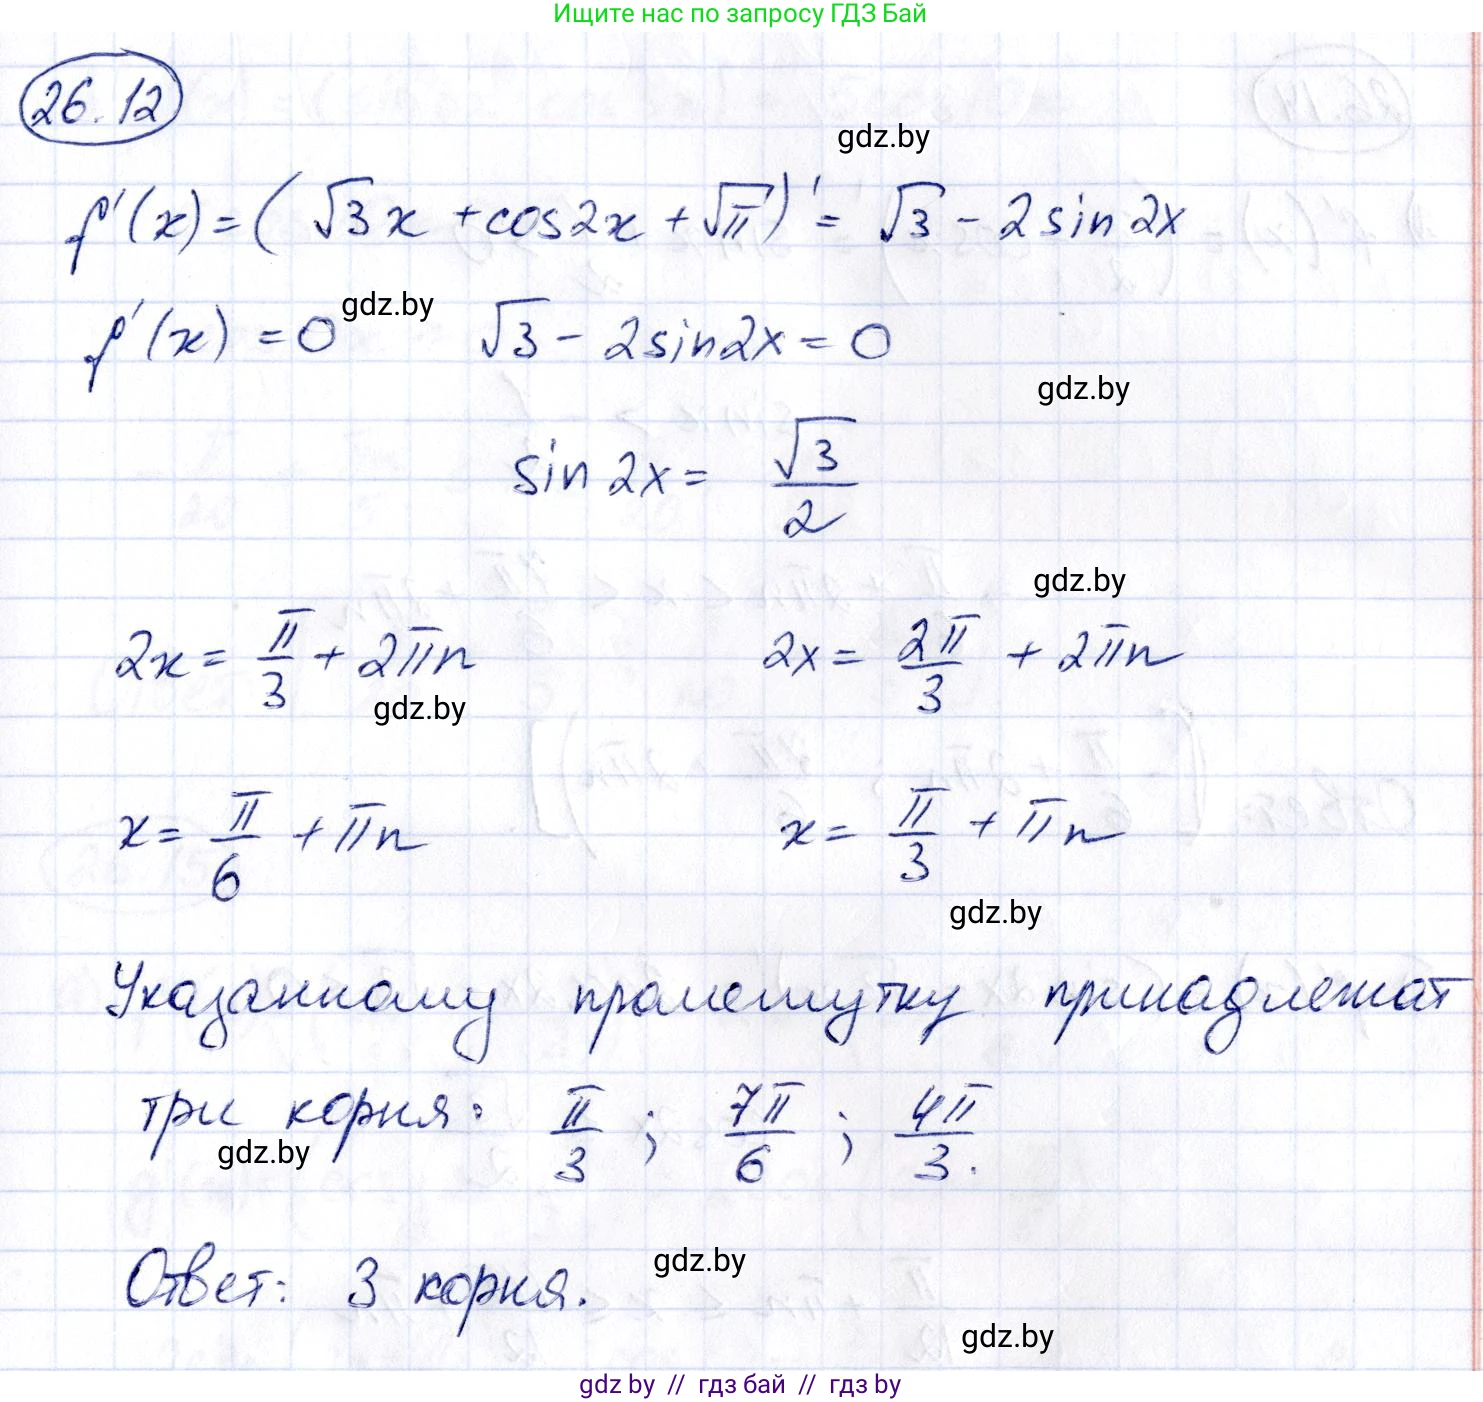 Ищите нас по запросу ГДЗ Бай
26.12
gdz.by
f'(x) = (√3x + cos2x + √π)' = √3 - 2sin2x
gdz.by
f'(x) = 0 √3 - 2sin2x = 0
gdz.by
sin 2x = √3/2
gdz.by
2x = π/3 + 2πn 2x = 2π/3 + 2πn
gdz.by
x = π/6 + πn x = π/3 + πn
gdz.by
Указанному промежутку принадлежат
три корня: π/3 ; 7π/6 ; 4π/3.
gdz.by
Ответ: 3 корня.
gdz.by
gdz.by
gdz by // гдз бай // гдз by